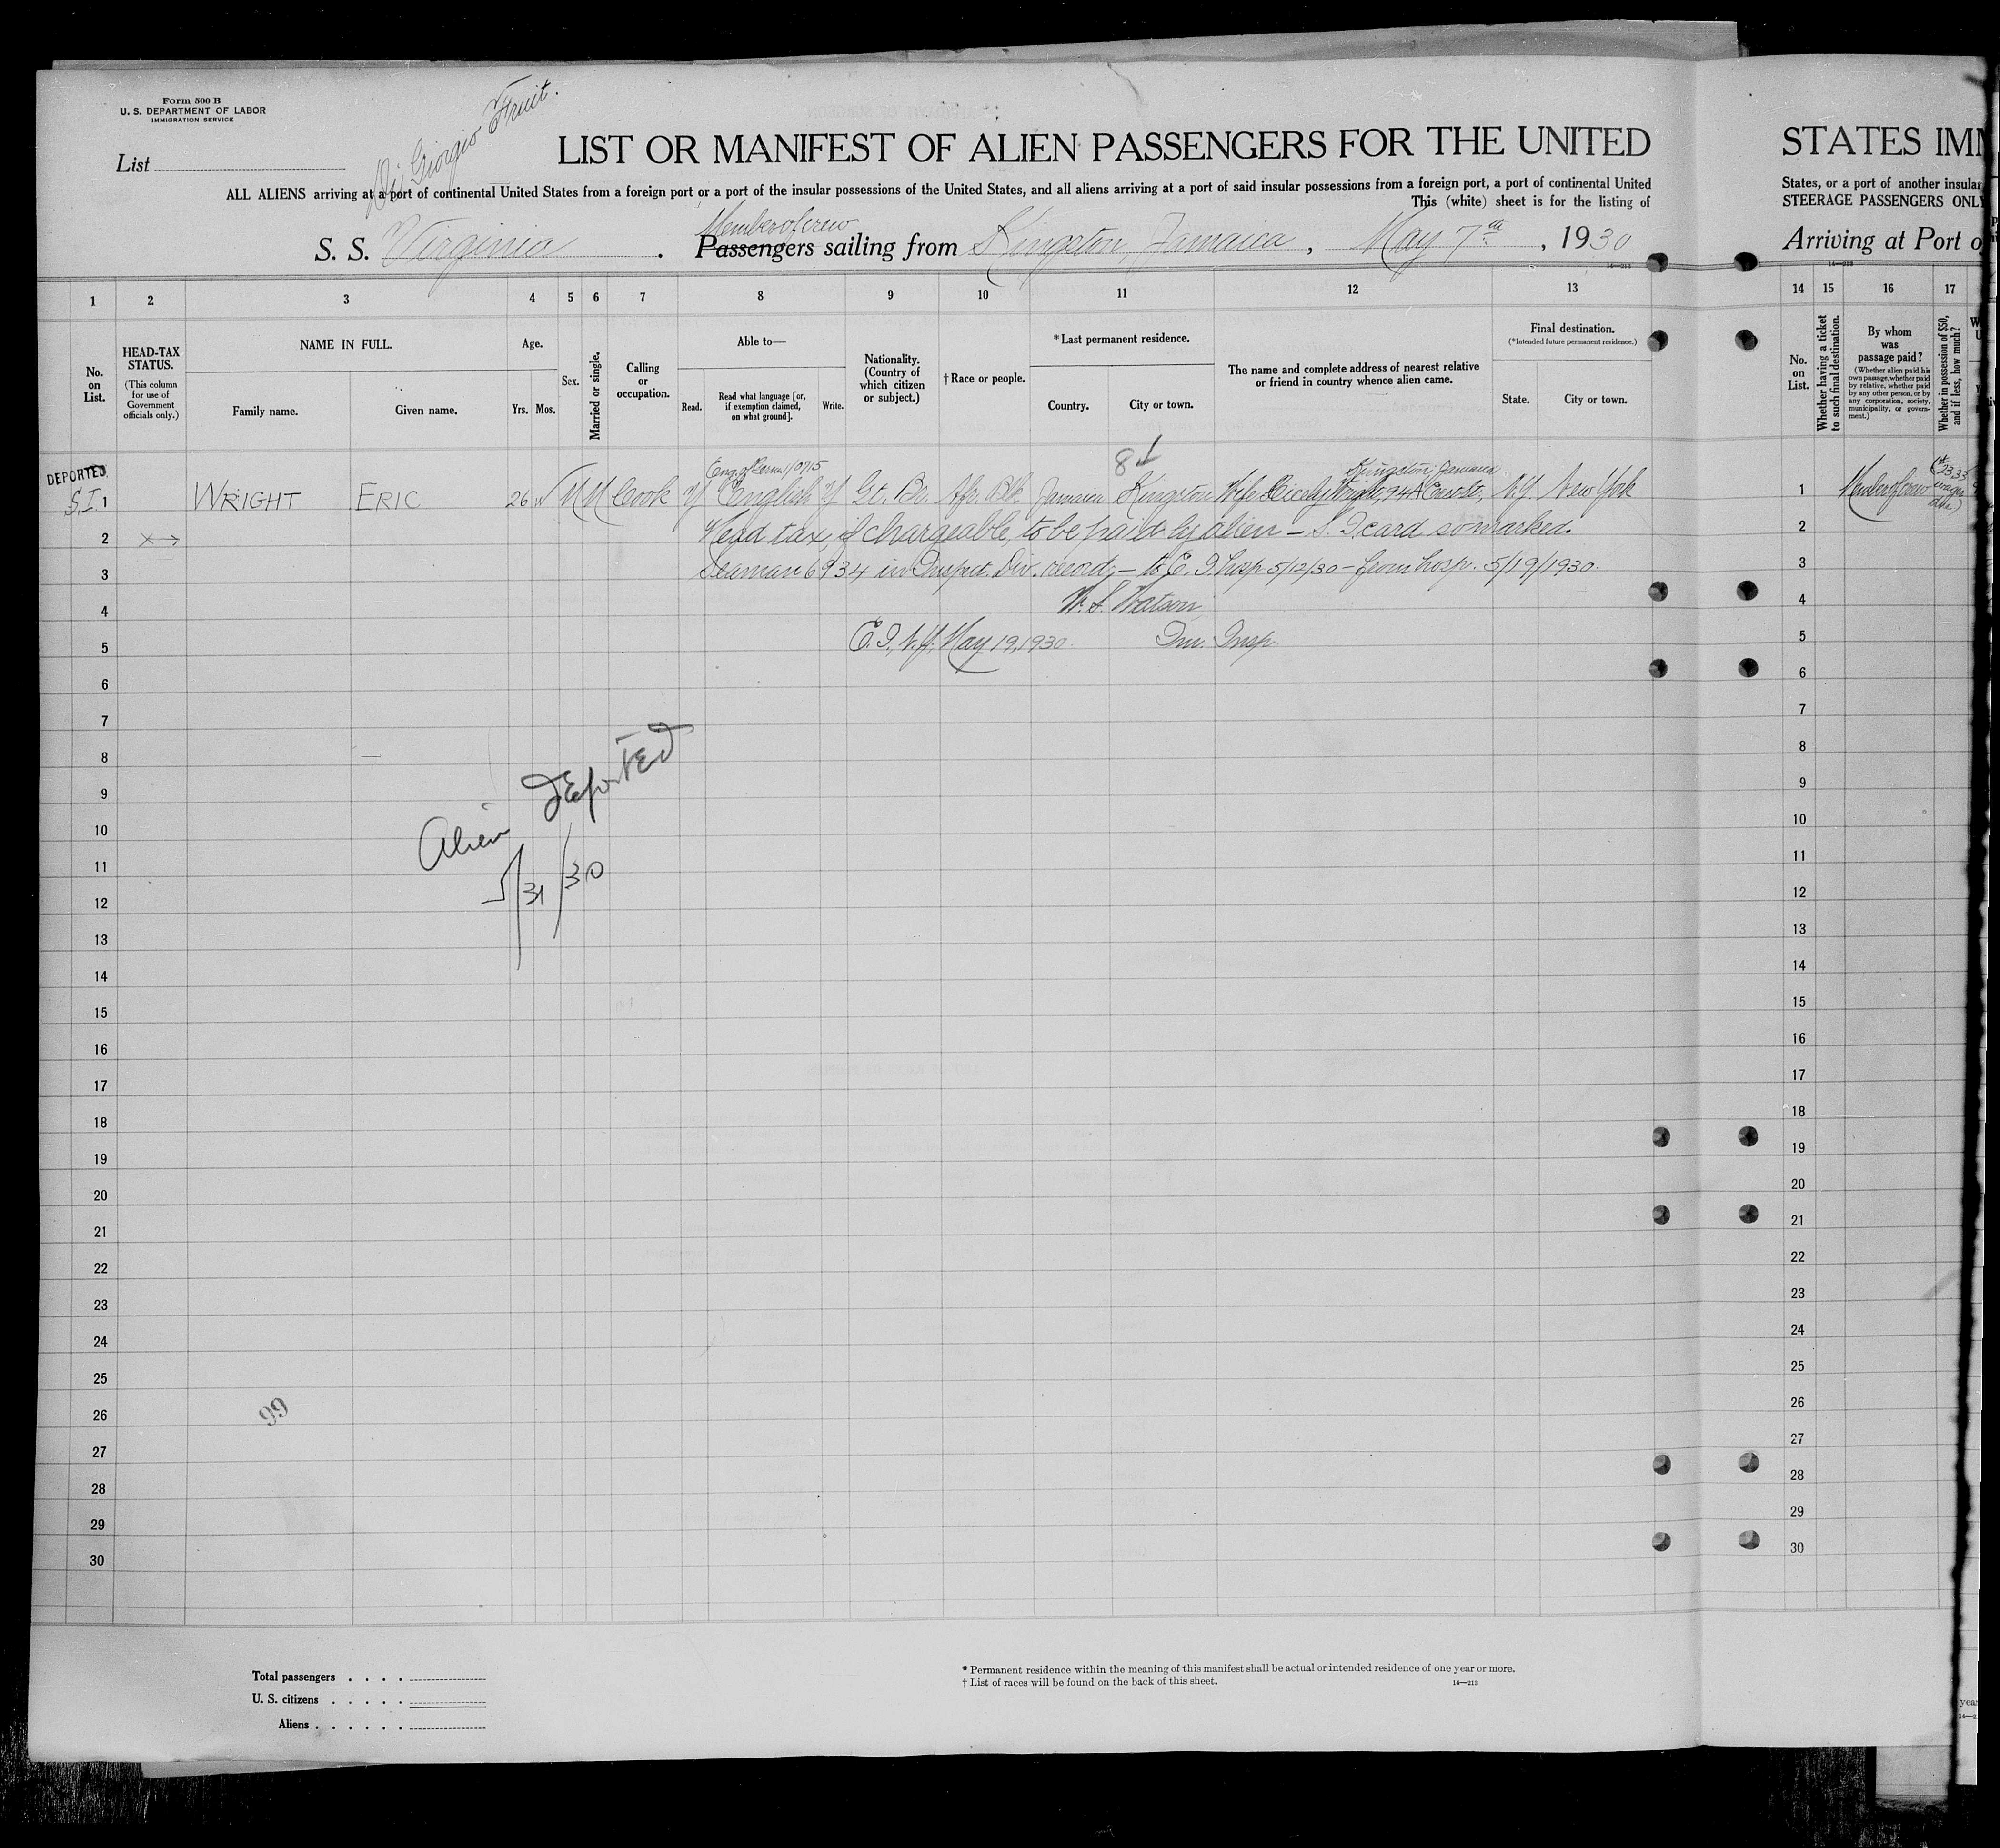 Form 500 B
U. S. DEPARTMENT OF LABOR
IMMIGRATION SERVICE
List
Di Giorgio Fruit.
LIST OR MANIFEST OF ALIEN PASSENGERS FOR THE UNITED
ALL ALIENS arriving at a port of continental United States from a foreign port or a port of the insular possessions of the United States, and all aliens arriving at a port of said insular possessions from a foreign port, a port of continental United
This (white) sheet is for the listing of
Members of crew
S. S. Virginia . Passengers sailing from Kingston, Jamaica , May 7th , 1930
14—213
1 2 3 4 5 6 7 8 9 10 11 12 13
No. on List.
HEAD-TAX STATUS.
(This column for use of Government officials only.)
NAME IN FULL.
Family name.
Given name.
Age.
Yrs. Mos.
Sex.
Married or single.
Calling or occupation.
Able to—
Read.
Read what language [or, if exemption claimed, on what ground].
Write.
Nationality. (Country of which citizen or subject.)
†Race or people.
*Last permanent residence.
Country.
City or town.
The name and complete address of nearest relative or friend in country whence alien came.
Final destination.
(*Intended future permanent residence.)
State.
City or town.
DEPORTED
8
Kingston, Jamaica
S.I. 1 WRIGHT ERIC 26 M M Cook Y English Y Gt. Br. Afr. Blk Jamaica Kingston Wife Cicely Wright, 94A East St., N.Y. New York
2 Head tax, if chargeable, to be paid by alien – S. I. card so marked.
3 Seaman 6934 in Inspect. Div. record; – to E. I. hosp. 5/12/30 – from hosp. 5/19/1930.
4 W. S. Watson
5 E. I., N.Y. May 19, 1930. Imm. Insp
6
7
8
9
10
11
12
13
14
15
16
17
18
19
20
21
22
23
24
25
26
27
28
29
30
Alien DEPORTED
5/31/30
99
Total passengers . . . .
U. S. citizens . . . . .
Aliens . . . . . .
* Permanent residence within the meaning of this manifest shall be actual or intended residence of one year or more.
† List of races will be found on the back of this sheet.
14—213
STATES IMM
States, or a port of another insular
STEERAGE PASSENGERS ONLY
Arriving at Port o
14—213
14 15 16 17
No. on List.
Whether having a ticket to such final destination.
By whom was passage paid?
(Whether alien paid his own passage, whether paid by relative, whether paid by any other person, or by any corporation, society, municipality, or government.)
Whether in possession of $50, and if less, how much?
1 Member of crew
2
3
4
5
6
7
8
9
10
11
12
13
14
15
16
17
18
19
20
21
22
23
24
25
26
27
28
29
30